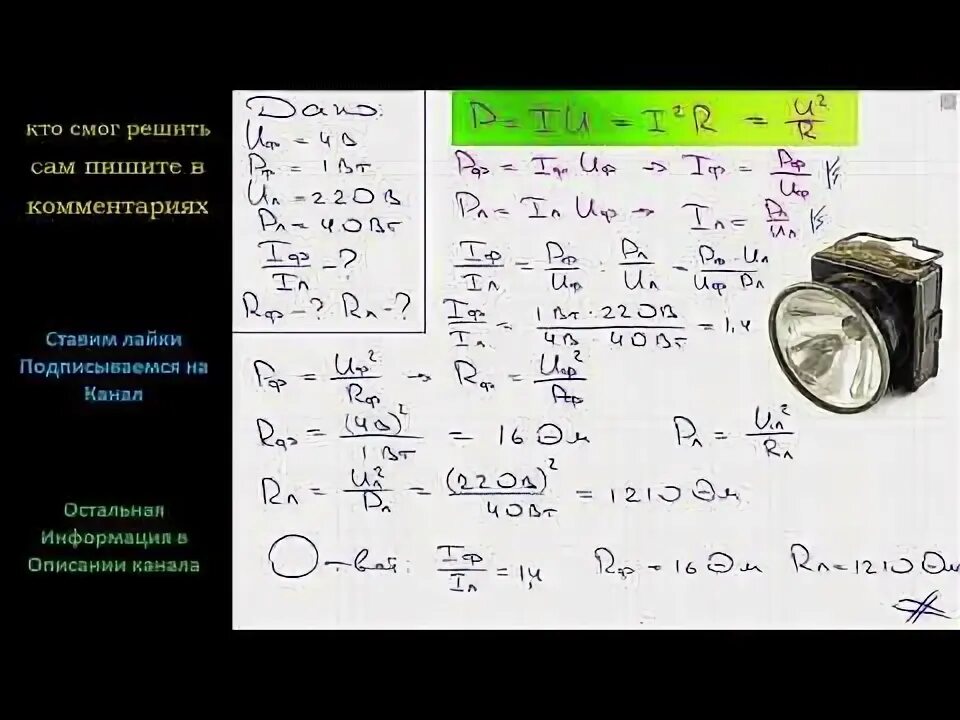 кто смог решить
сам пишите в
комментариях
Ставим лайки
Подписываемся на
Канал
Остальная
Информация в
Описании канала
Дано:
Uф = 4В
Pф = 1Вт
Uл = 220В
Pл = 40Вт
Iф/Iл - ?
Rф - ? Rл - ?
P = IU = I²R = U²/R
Pф = Iф Uф → Iф = Pф/Uф
Pл = Iл Uф → Iл = Pл/Uл
Iф/Iл = Pф/Uф : Pл/Uл = Pф · Uл/Uф Pл
Iф/Iл = 1Вт · 220В/4В · 40Вт = 1,4
Pф = Uф²/Rф → Rф = Uф²/Pф
Rф = (4В)²/1Вт = 16 Ом Pл = Uл²/Rл
Rл = Uл²/Pл = (220В)²/40Вт = 1210 Ом
О-твет: Iф/Iл = 1,4 Rф = 16 Ом Rл = 1210 Ом